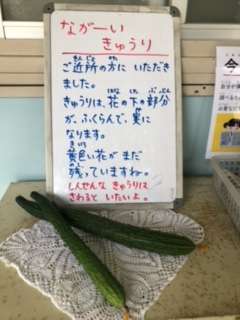 ながーい
きゅうり
ご近所の方に いただき
ました。
きゅうりは、花の下の部分
が、ふくらんで、実に
なります。
黄色い花が まだ
残っていますね。
しんせんな きゅうりは
さわると いたいよ。
今